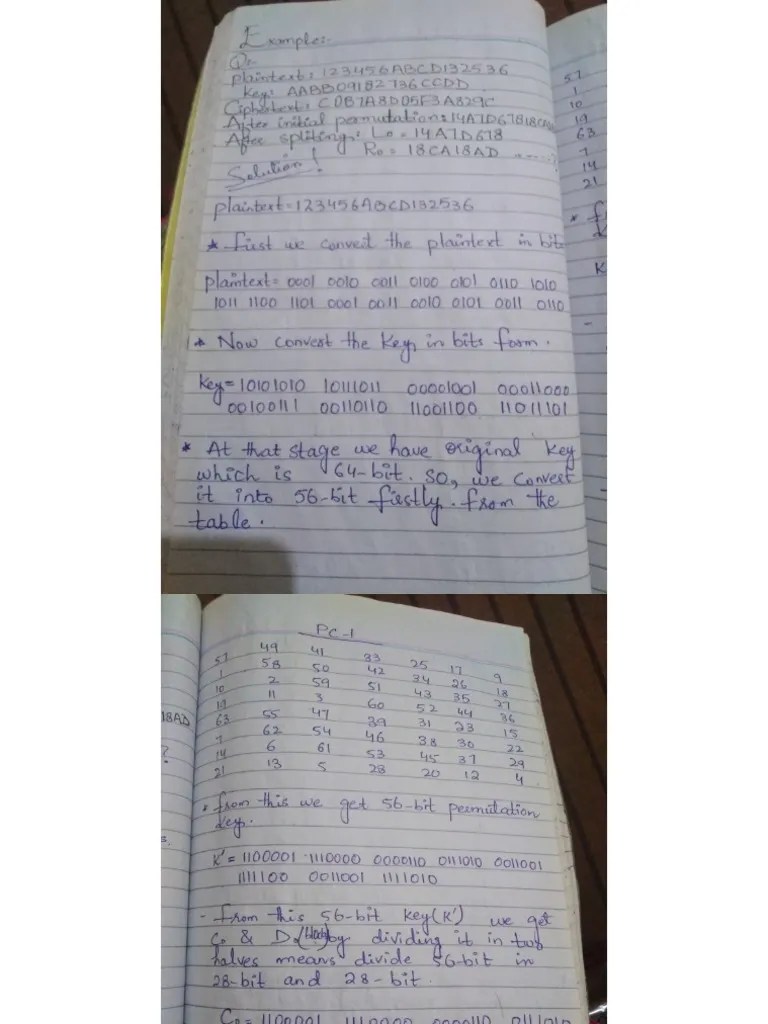 Example:-
Q:-
plaintext: 123456ABCD132536
Key: AABB09182736CCDD
Ciphertext: C0B7A8D05F3A829C
After initial permutation: 14A7D67818CA18AD
After spliting: L0 = 14A7D678
R0 = 18CA18AD ......?
Solution!
plaintext = 123456ABCD132536
* First we convert the plaintext in bits
plaintext = 0001 0010 0011 0100 0101 0110 1010
1011 1100 1101 0001 0011 0010 0101 0011 0110
* Now convert the key in bits form.
Key = 10101010 10111011 00001001 00011000
00100111 00110110 11001100 11011101
* At that stage we have original key
which is 64-bit. So, we convert
it into 56-bit firstly. from the
table.
57
1
10
19
63
7
14
21
PC-1
57 49 41 33 25 17 9
1 58 50 42 34 26 18
10 2 59 51 43 35 27
19 11 3 60 52 44 36
63 55 47 39 31 23 15
7 62 54 46 38 30 22
14 6 61 53 45 37 29
21 13 5 28 20 12 4
* from this we get 56-bit permutation
key.
K' = 1100001 1110000 0000110 0111010 0011001
1111100 0011001 1111010
- from this 56-bit key (K') we get
C0 & D0 by dividing it in two
halves means divide 56-bit in
28-bit and 28-bit.
C0 = 1100001 1110000 0000110 0111010
18AD
?